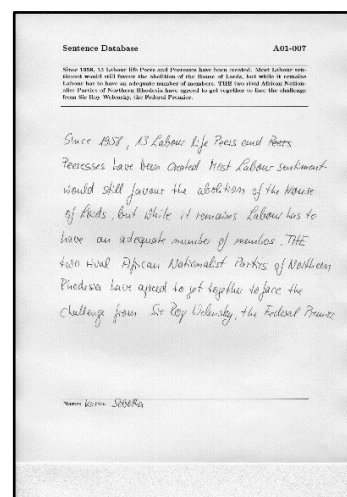 Sentence Database A01-007
Since 1958, 13 Labour life Peers and Peeresses have been created. Most Labour sen-
timent would still favour the abolition of the House of Lords, but while it remains
Labour has to have an adequate number of members. THE two rival African Nation-
alist Parties of Northern Rhodesia have agreed to get together to face the challenge
from Sir Roy Welensky, the Federal Premier.
Since 1958, 13 Labour life Peers and Peers
Peeresses have been created Most Labour sentiment
would still favour the abolition of the House
of Lords, but while it remains Labour has to
have an adequate number of members. THE
two rival African Nationalist Parties of Northern
Rhodesia have agreed to get together to face the
challenge from Sir Roy Welensky, the Federal Premier
Name: